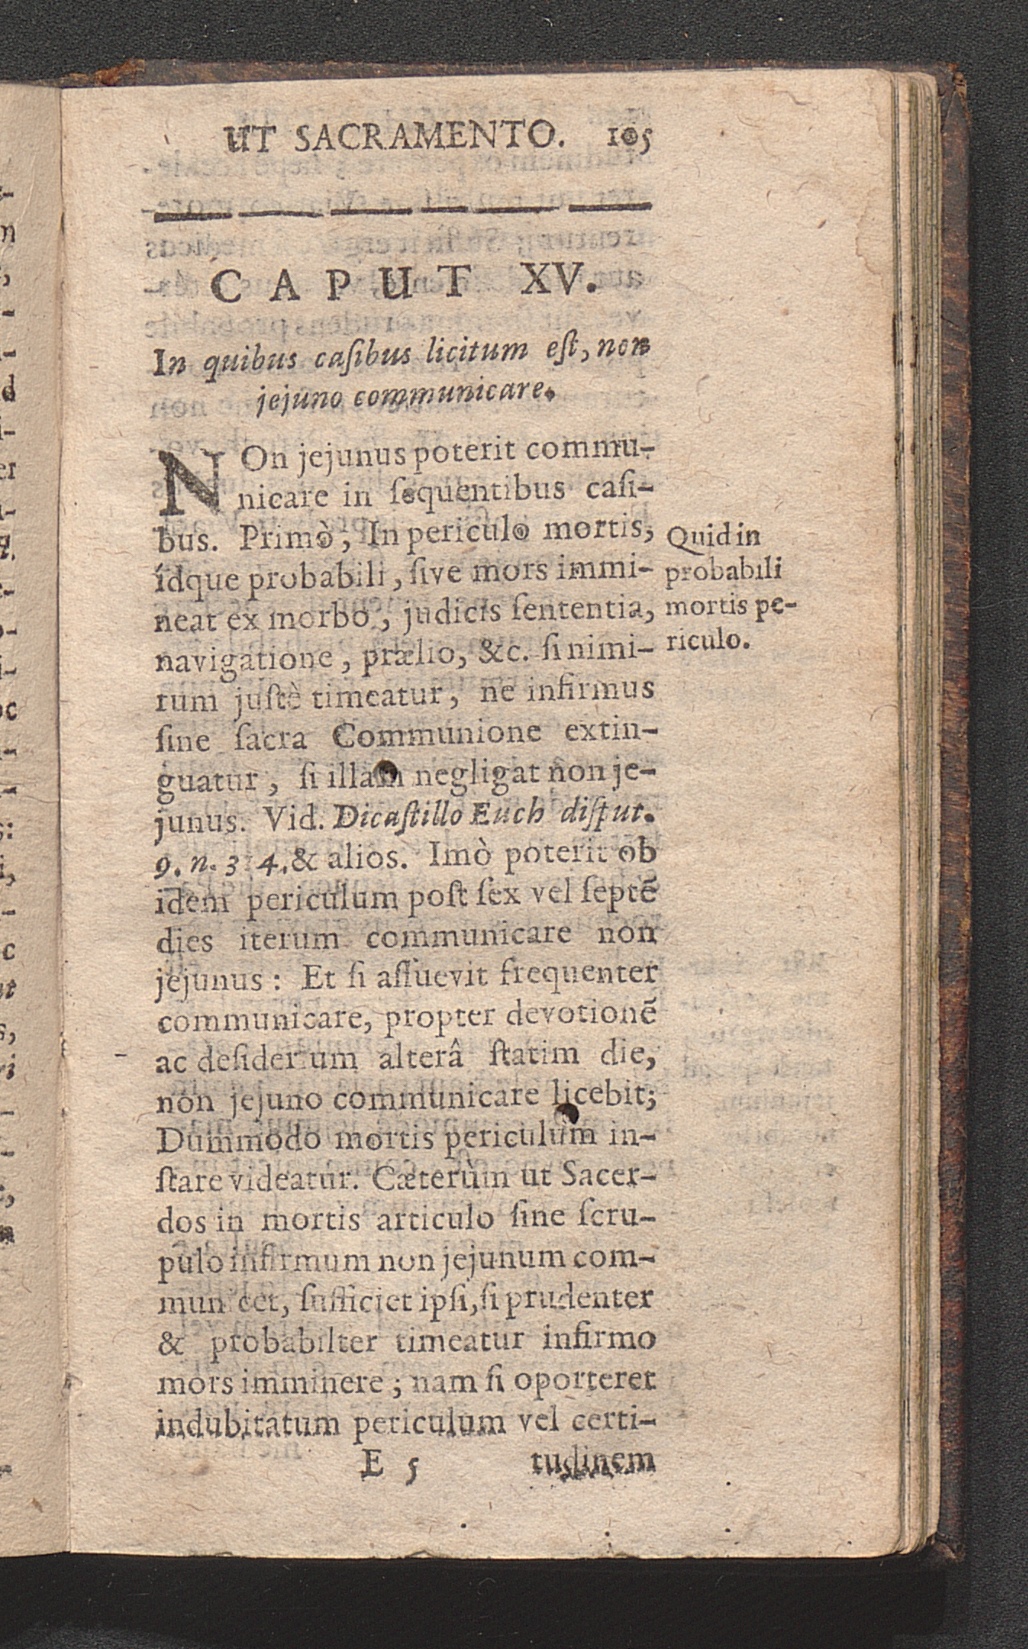 UT SACRAMENTO. 105
CAPUT XV.
In quibus caſibus licitum eſt, non
jejuno communicare.
NOn jejunus poterit commu-
nicare in ſequentibus caſi-
bus. Primò, In periculo mortis,
idque probabili, ſive mors immi-
neat ex morbo, judicis ſententia,
navigatione, prælio, &c. ſi nimi-
rum juſtè timeatur, ne infirmus
ſine ſacra Communione extin-
guatur, ſi illam negligat non je-
junus. Vid. Dicaſtillo Euch diſput.
9. n. 3 4. & alios. Imò poterit ob
idem periculum poſt ſex vel ſeptē
dies iterum communicare non
jejunus: Et ſi aſſuevit frequenter
communicare, propter devotionē
ac deſider um alterâ ſtatim die,
non jejuno communicare licebit;
Dummodo mortis periculum in-
ſtare videatur. Cæterùm ut Sacer-
dos in mortis articulo ſine ſcru-
pulo infirmum non jejunum com-
mun cet, ſufficiet ipſi, ſi prudenter
& probabilter timeatur infirmo
mors imminere; nam ſi oporteret
indubitatum periculum vel certi-
E 5 tudinem
Quid in
probabili
mortis pe-
riculo.